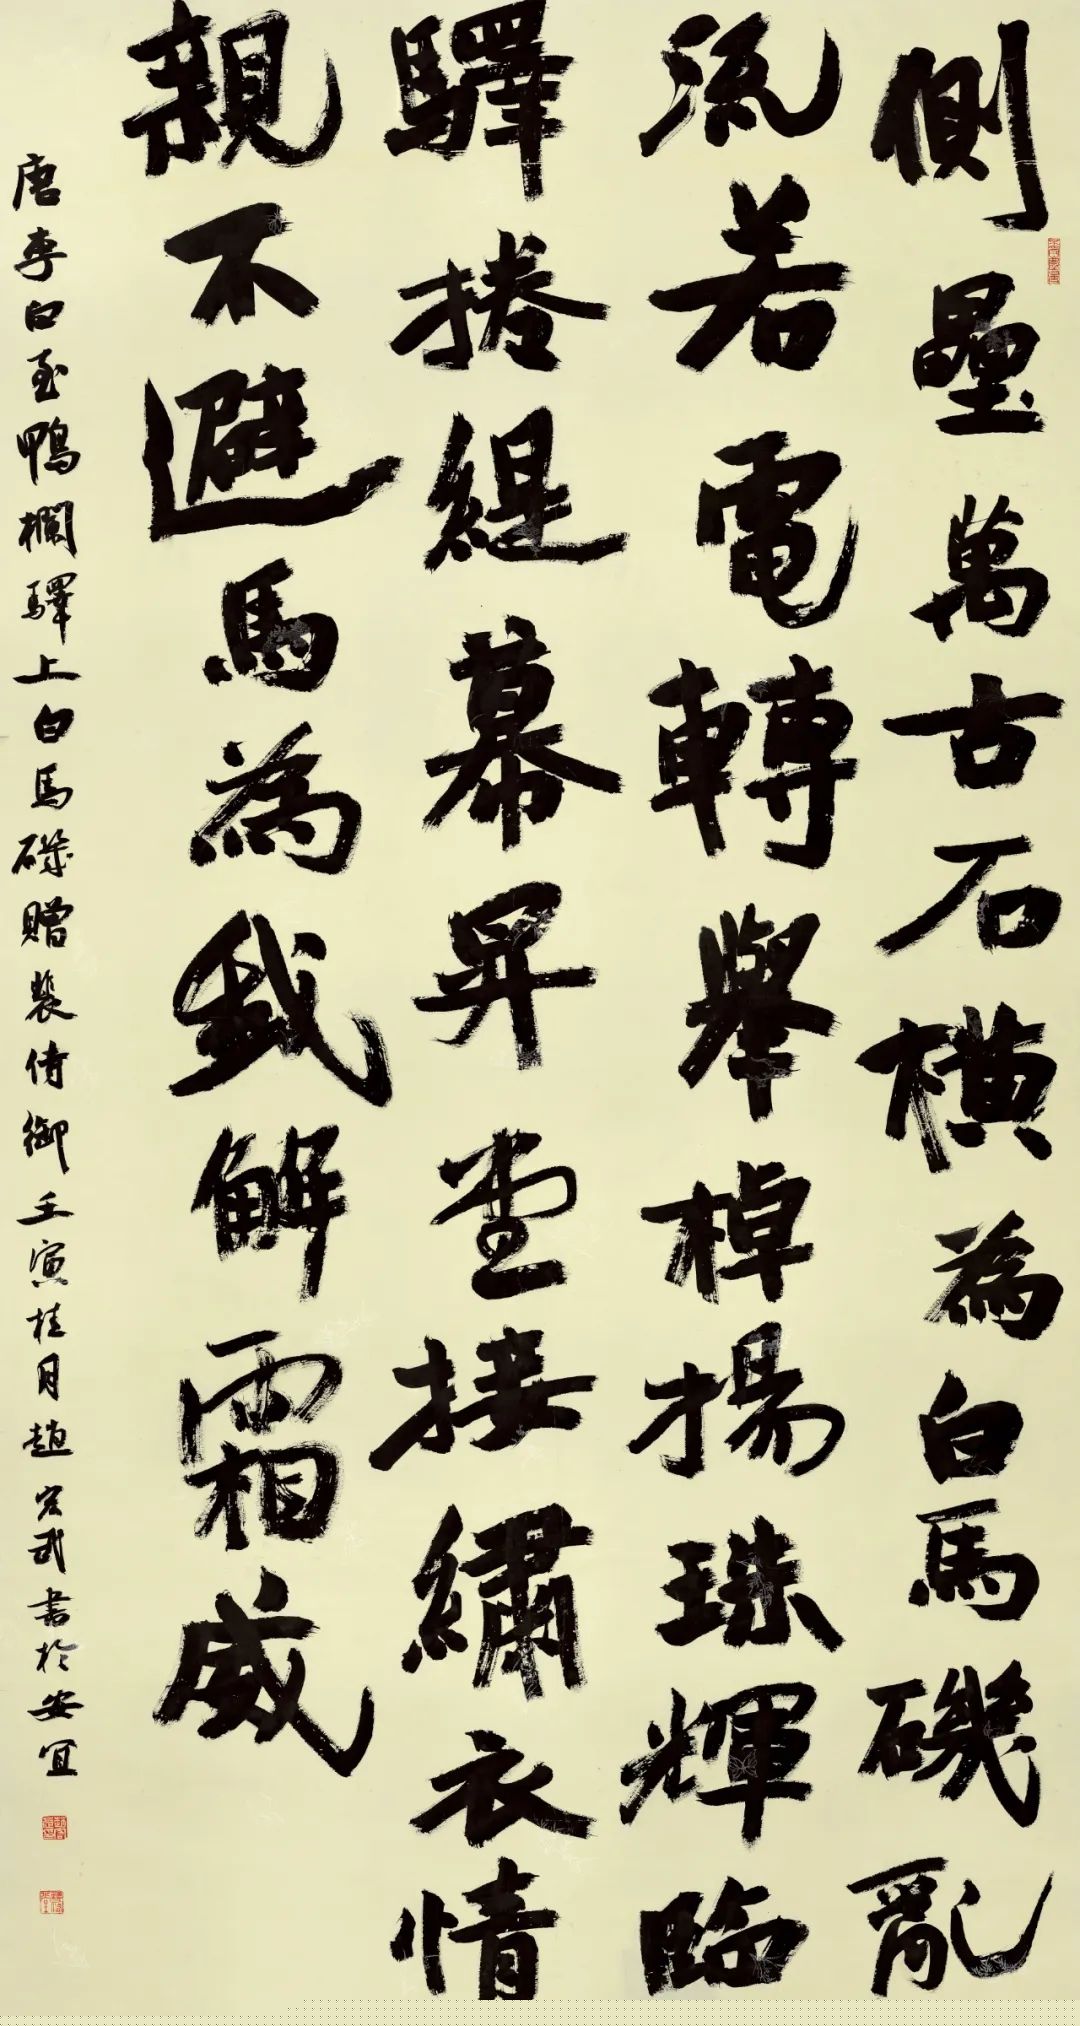 側疊萬古石橫為白馬磯亂
流若電轉舉棹揚珠輝臨
驛捲緹幕昇堂接繡衣情
親不避馬為我解霜威
唐李白至鴨欄驛上白馬磯贈裴侍御壬寅桂月趙宏武書於安宜